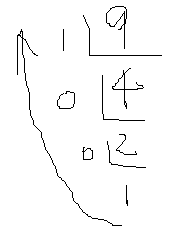 1 9
0 4
0 2
1